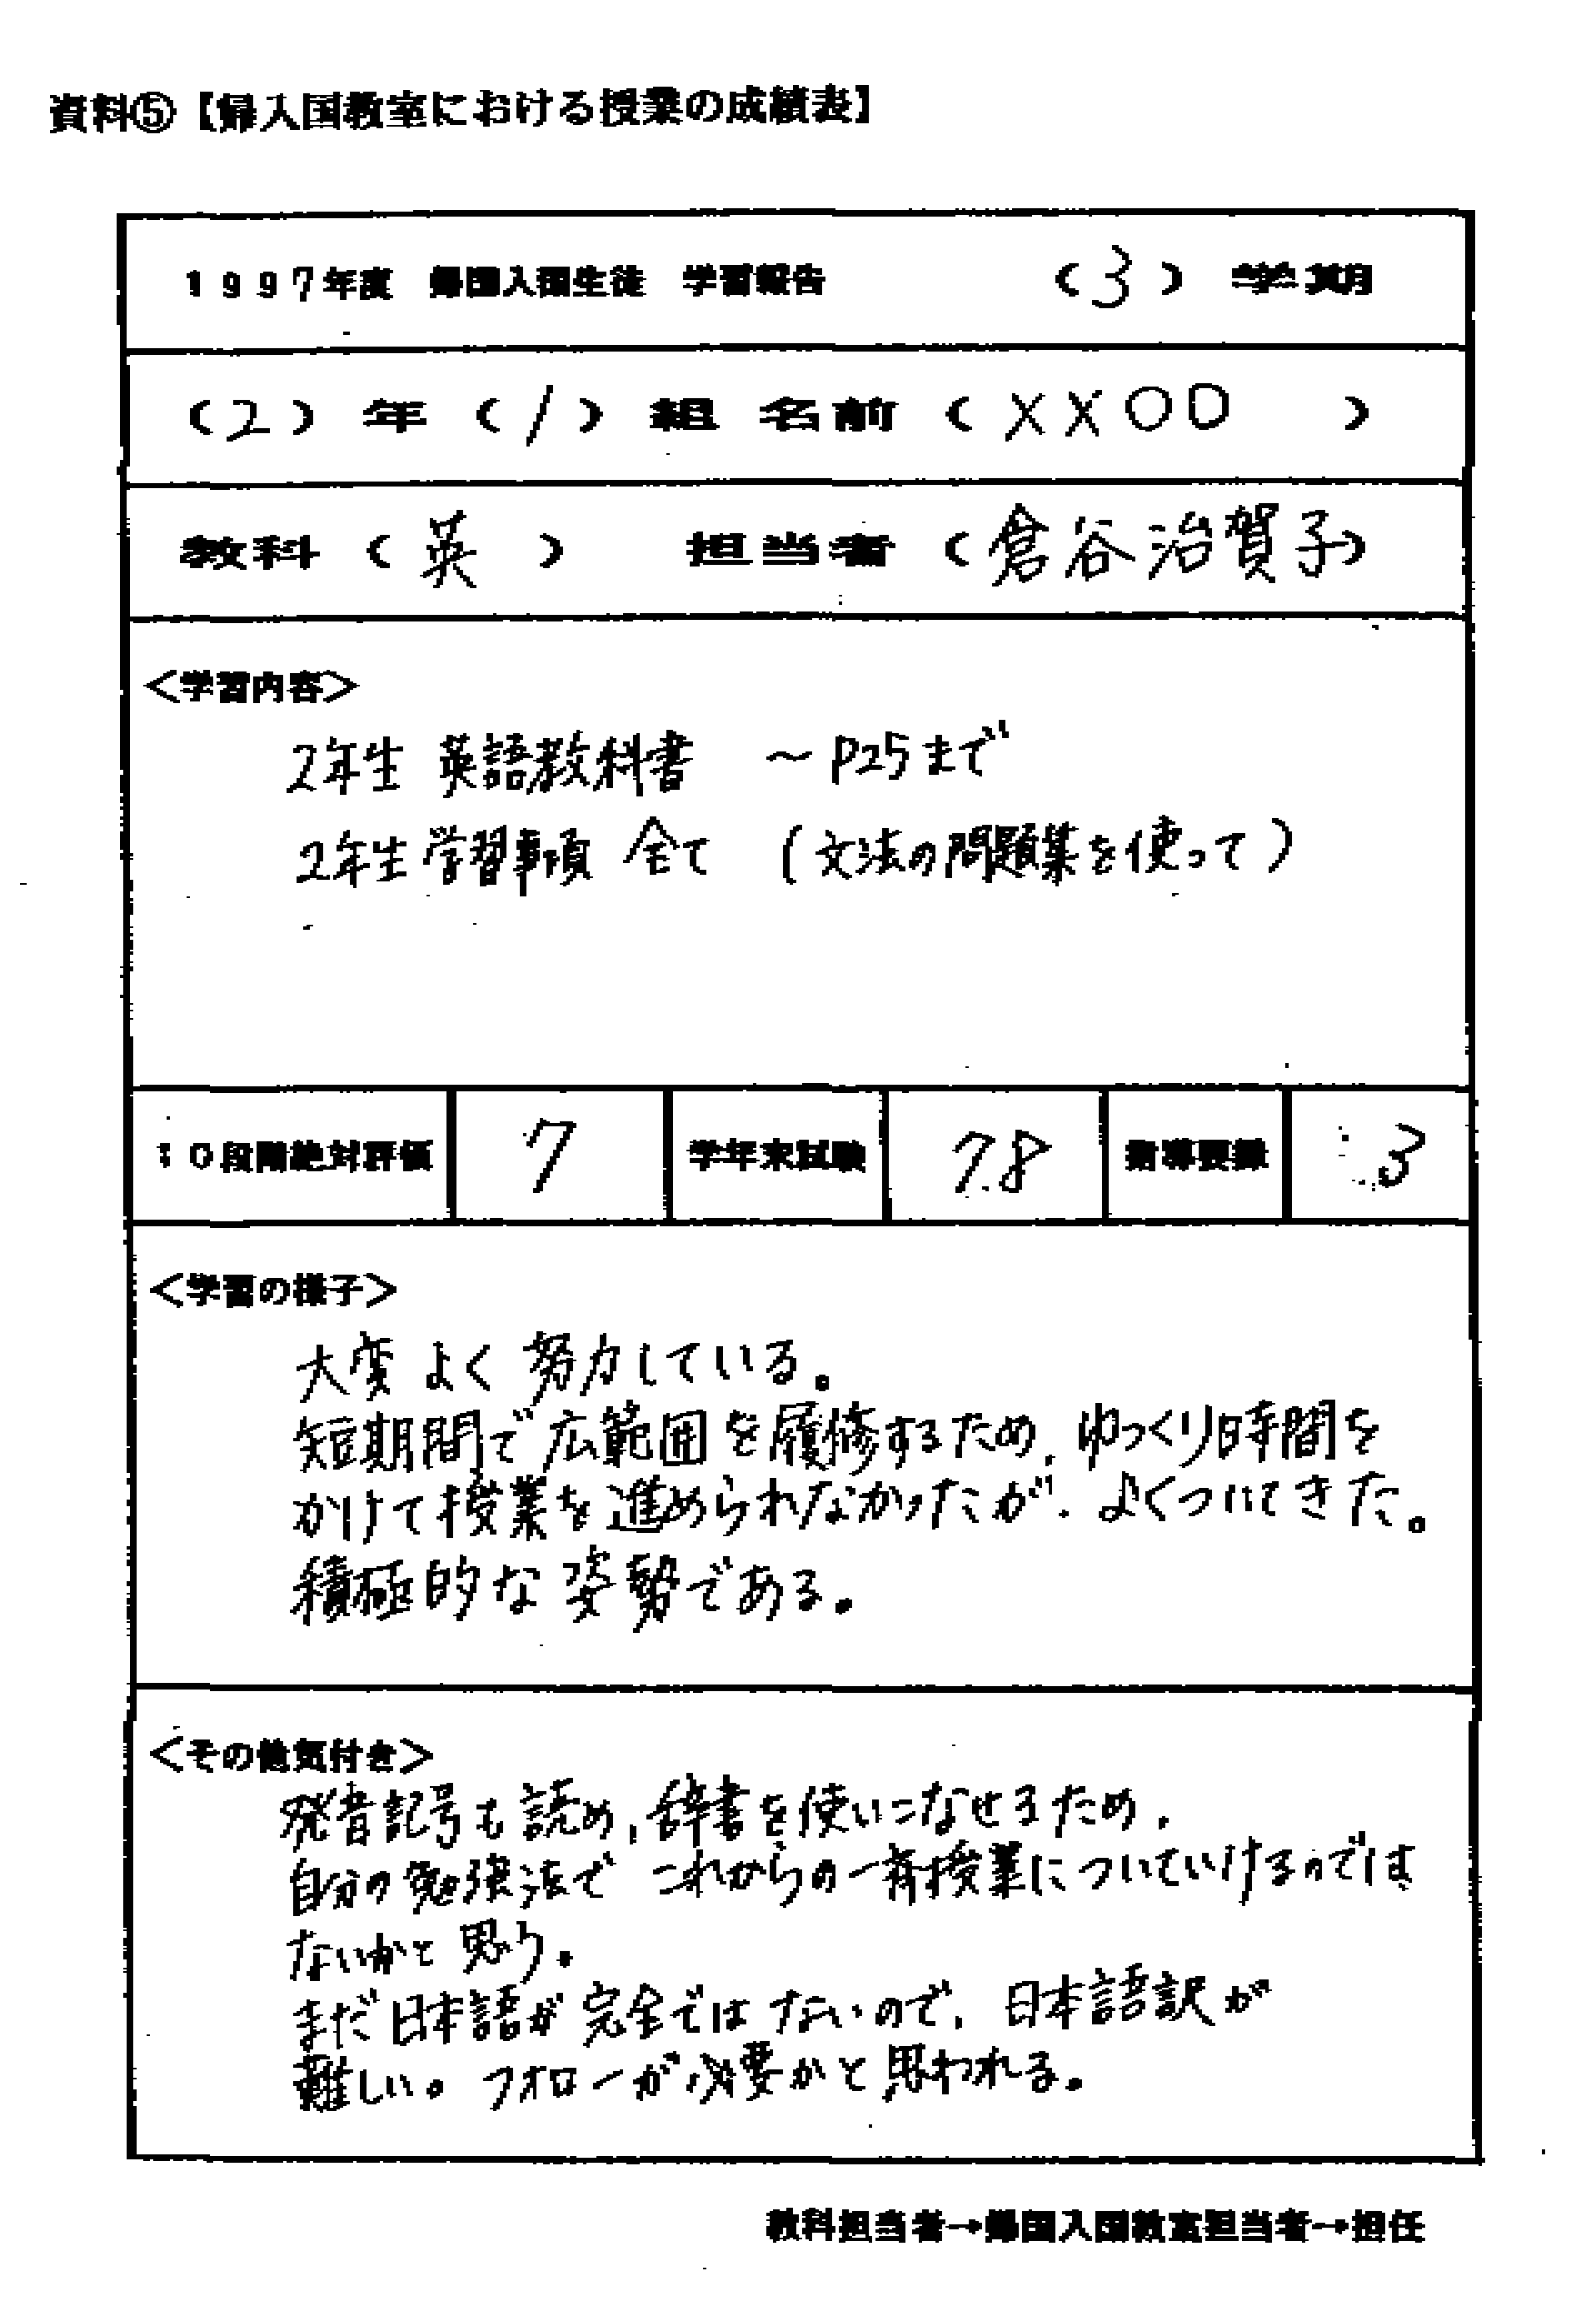 資料⑤【帰入国教室における授業の成績表】
1997年度 帰国入国生徒 学習報告 (3) 学期
(2)年(1)組 名前(××○○)
教科(英) 担当者(倉谷治賀子)
<学習内容>
2年生 英語教科書 ~P25まで
2年生学習事項 全て (文法の問題集を使って)
10段階絶対評価 7 学年末試験 78 指導要録 3
<学習の様子>
大変よく努力している。
短期間で広範囲を履修するため,ゆっくり時間を
かけて授業を進められなかったが、よくついてきた。
積極的な姿勢である。
<その他気付き>
発音記号も読め,辞書を使いこなせるため,
自分の勉強法でこれからの一斉授業についていけるのでは
ないかと思う。
まだ日本語が完全ではないので,日本語訳が
難しい。フォローが必要かと思われる。
教科担当者→帰国入国教室担当者→担任